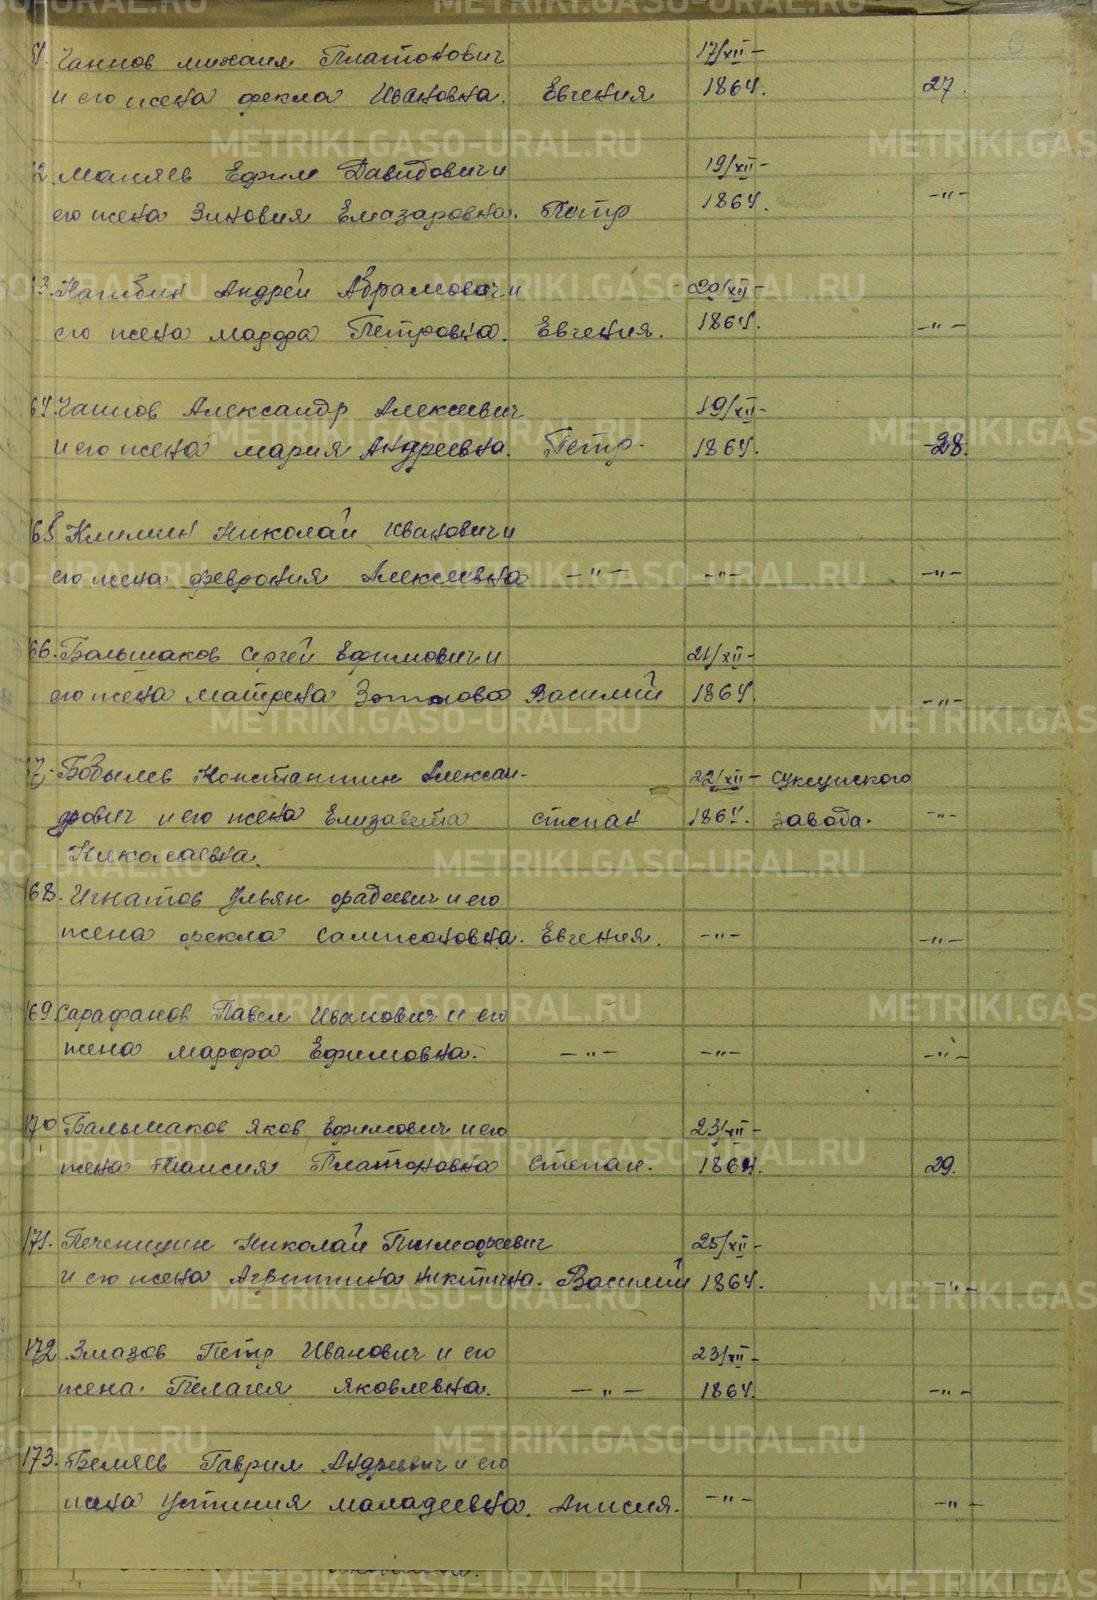 61. Чаинов Михаил Платонович 17/XII-
и его жена Фекла Ивановна. Евгения 1864. 27.
62. Маняев Ефим Давидович и 19/XII-
его жена Зиновия Елазаровна. Петр 1864. -"-
63. Нагибин Андрей Абрамович и 20/XII-
его жена Марфа Петровна. Евгения. 1864. -"-
64. Чаинов Александр Алексеевич 19/XII-
и его жена Мария Андреевна. Петр. 1864. 28.
165 Климин Николай Иванович и
его жена Феврония Алексеевна -"- -"- -"-
166. Балышаков Сергей Ефимович и 21/XII-
его жена Матрена Зотовна Василий 1864. -"-
Бобылев Константин Алексан- 22/XII- Суксунского
дрович и его жена Елизавета Степан 1864. завода. -"-
Николаевна.
168. Игнатов Ульян Фадеевич и его
жена Фекла Сампсоновна. Евгения. -"- -"-
169. Сарафанов Павел Иванович и его
жена Марфа Ефимовна. -"- -"- -"-
170 Балышаков Яков Ефимович и его 23/XII-
жена Таисия Платоновна Степан. 1864. 29.
171. Печеницин Николай Тимофеевич 25/XII-
и его жена Агриппина Никитична. Василий 1864. -"-
172. Змазов Петр Иванович и его 23/XII-
жена. Пелагея Яковлевна. -"- 1864. -"-
173. Беляев Гаврил Андреевич и его
жена Устиния Маладеевна. Анисия. -"- -"-
METRIKI.GASO-URAL.RU